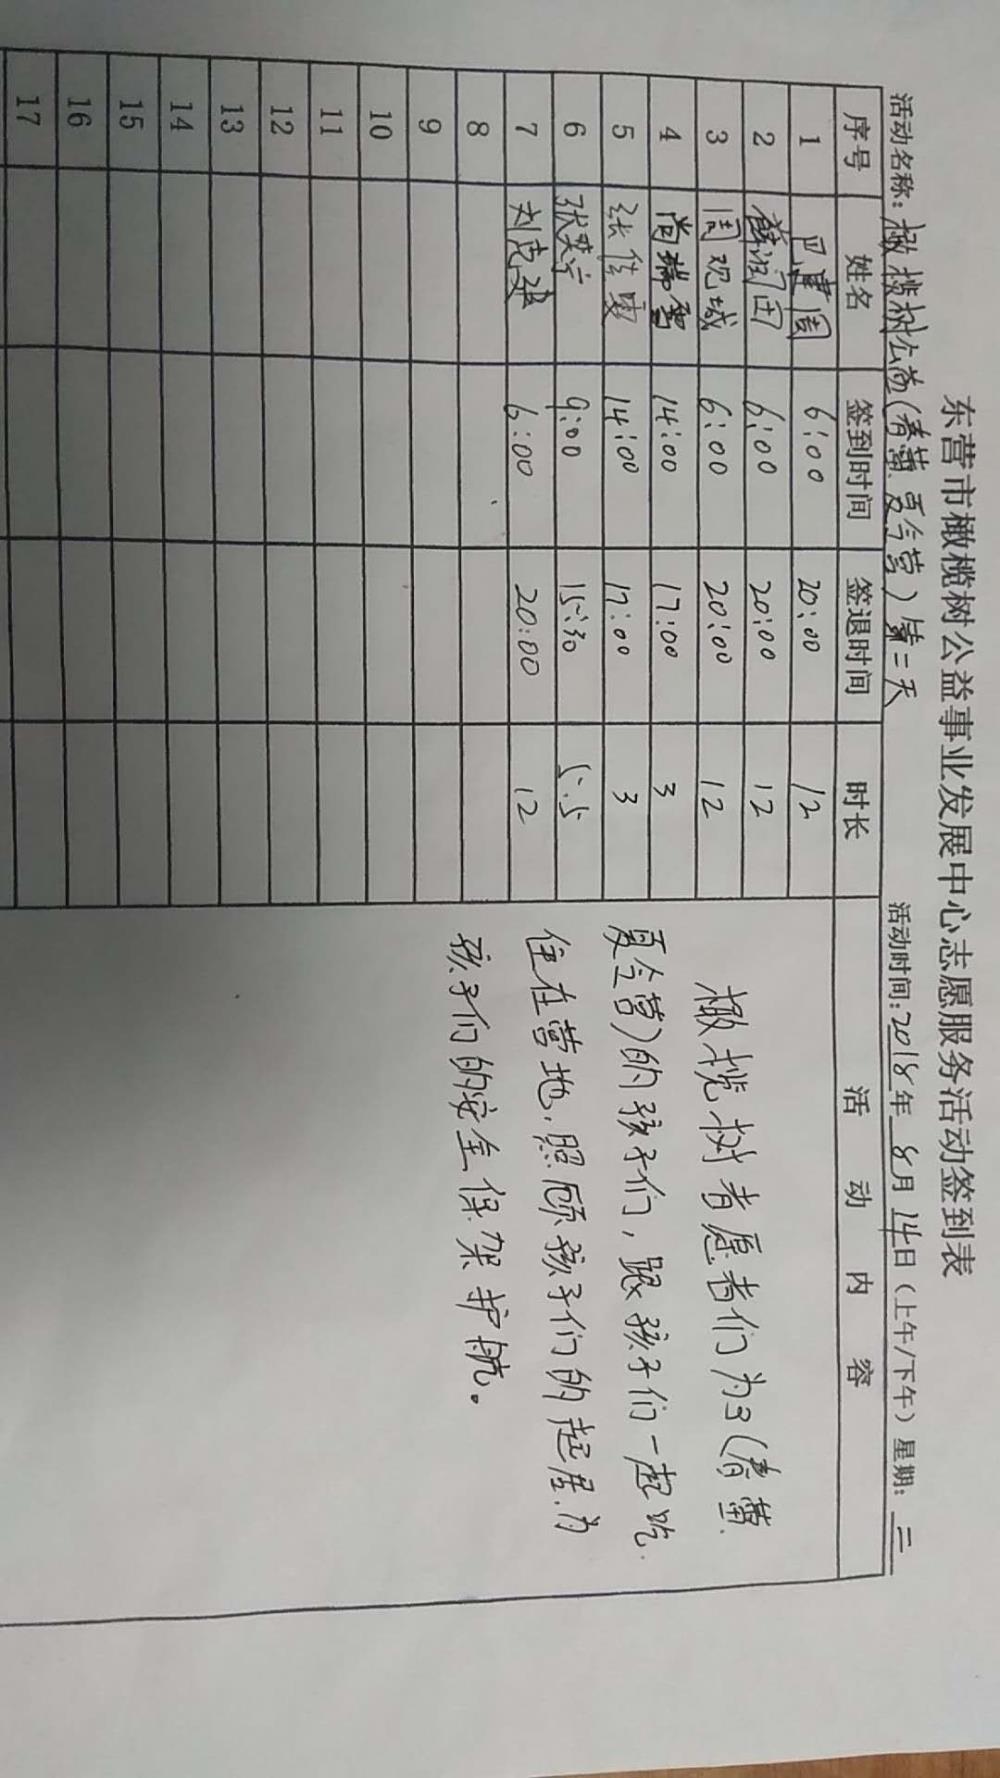 东营市橄榄树公益事业发展中心志愿服务活动签到表
活动名称：橄榄树公益(春蕾夏令营)第二天 活动时间：2018年8月14日(上午/下午) 星期：二
序号 姓名 签到时间 签退时间 时长 活动内容
1 建国 6:00 20:00 12
2 薛润田 6:00 20:00 12
3 周观城 6:00 20:00 12
4 尚瑞雪 14:00 17:00 3
5 张佳 14:00 17:00 3
6 张梦宇 9:00 15:30 5.5
7 刘志建 6:00 20:00 12
8
9
10
11
12
13
14
15
16
17
橄榄树者愿者们为3(春蕾
夏令营)的孩子们，跟孩子们一起吃.
住在营地，照顾孩子们的起居.为
孩子们的安全保架护航。